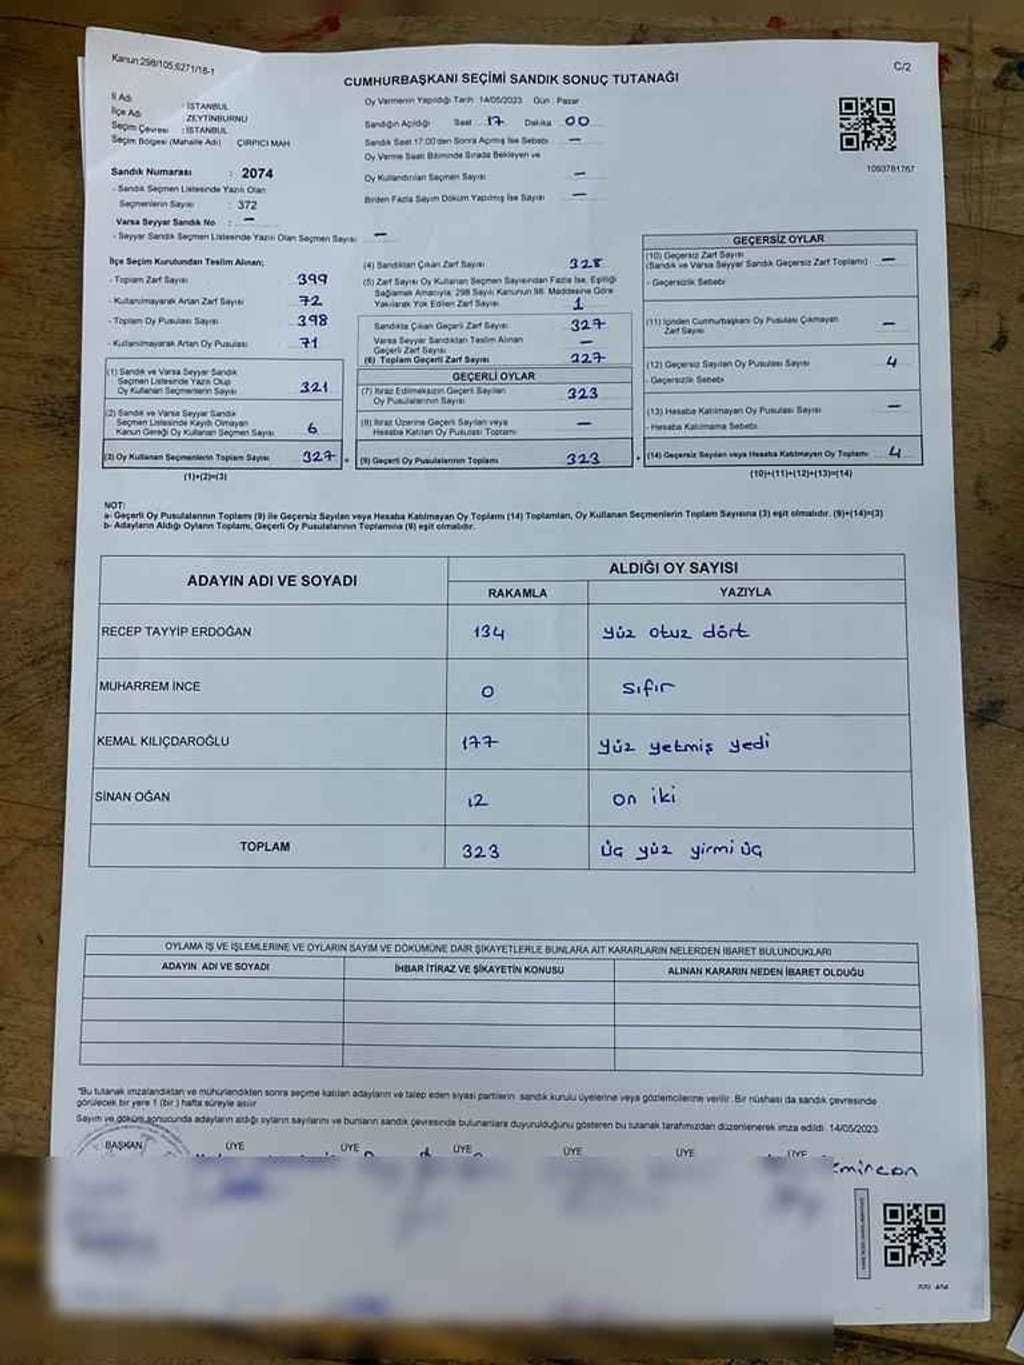 Kanun:298/105,6271/18-1
C/2
CUMHURBAŞKANI SEÇİMİ SANDIK SONUÇ TUTANAĞI
İl Adı : İSTANBUL
İlçe Adı ZEYTİNBURNU
Seçim Çevresi : İSTANBUL
Seçim Bölgesi (Mahalle Adı) ÇIRPICI MAH
Sandık Numarası : 2074
- Sandık Seçmen Listesinde Yazılı Olan
Seçmenlerin Sayısı : 372
Varsa Seyyar Sandık No : —
- Seyyar Sandık Seçmen Listesinde Yazılı Olan Seçmen Sayısı —
Oy Vermenin Yapıldığı Tarih 14/05/2023 Gün : Pazar
Sandığın Açıldığı Saat 17 Dakika 00
Sandık Saat 17:00'den Sonra Açılmış İse Sebebi —
Oy Verme Saati Bitiminde Sırada Bekleyen ve
Oy Kullandırılan Seçmen Sayısı —
Birden Fazla Sayım Döküm Yapılmış İse Sayısı —
1093781767
İlçe Seçim Kurulundan Teslim Alınan;
- Toplam Zarf Sayısı 399
- Kullanılmayarak Artan Zarf Sayısı 72
- Toplam Oy Pusulası Sayısı 398
- Kullanılmayarak Artan Oy Pusulası 71
(1) Sandık ve Varsa Seyyar Sandık
Seçmen Listesinde Yazılı Olup
Oy Kullanan Seçmenlerin Sayısı 321
(2) Sandık ve Varsa Seyyar Sandık
Seçmen Listesinde Kayıtlı Olmayan
Kanun Gereği Oy Kullanan Seçmen Sayısı 6
(3) Oy Kullanan Seçmenlerin Toplam Sayısı 327
(1)+(2)=(3)
(4) Sandıktan Çıkan Zarf Sayısı 328
(5) Zarf Sayısı Oy Kullanan Seçmen Sayısından Fazla İse, Eşitliği
Sağlamak Amacıyla, 298 Sayılı Kanunun 98. Maddesine Göre
Yakılarak Yok Edilen Zarf Sayısı 1
Sandıkta Çıkan Geçerli Zarf Sayısı 327
Varsa Seyyar Sandıktan Teslim Alınan
Geçerli Zarf Sayısı —
(6) Toplam Geçerli Zarf Sayısı 327
GEÇERLİ OYLAR
(7) İtiraz Edilmeksizin Geçerli Sayılan
Oy Pusulalarının Sayısı 323
(8) İtiraz Üzerine Geçerli Sayılan veya
Hesaba Katılan Oy Pusulası Toplamı —
= (9) Geçerli Oy Pusulalarının Toplamı 323
GEÇERSİZ OYLAR
(10) Geçersiz Zarf Sayısı
(Sandık ve Varsa Seyyar Sandık Geçersiz Zarf Toplamı) —
- Geçersizlik Sebebi
(11) İçinden Cumhurbaşkanı Oy Pusulası Çıkmayan
Zarf Sayısı —
(12) Geçersiz Sayılan Oy Pusulası Sayısı 4
- Geçersizlik Sebebi
(13) Hesaba Katılmayan Oy Pusulası Sayısı —
- Hesaba Katılmama Sebebi
+ (14) Geçersiz Sayılan veya Hesaba Katılmayan Oy Toplamı 4
(10)+(11)+(12)+(13)=(14)
NOT:
a- Geçerli Oy Pusulalarının Toplamı (9) ile Geçersiz Sayılan veya Hesaba Katılmayan Oy Toplamı (14) Toplamları, Oy Kullanan Seçmenlerin Toplam Sayısına (3) eşit olmalıdır. (9)+(14)=(3)
b- Adayların Aldığı Oyların Toplamı, Geçerli Oy Pusulalarının Toplamına (9) eşit olmalıdır.
ADAYIN ADI VE SOYADI ALDIĞI OY SAYISI
RAKAMLA YAZIYLA
RECEP TAYYİP ERDOĞAN 134 yüz otuz dört
MUHARREM İNCE 0 sıfır
KEMAL KILIÇDAROĞLU 177 yüz yetmiş yedi
SİNAN OĞAN 12 on iki
TOPLAM 323 üç yüz yirmi üç
OYLAMA İŞ VE İŞLEMLERİNE VE OYLARIN SAYIM VE DÖKÜMÜNE DAİR ŞİKAYETLERLE BUNLARA AİT KARARLARIN NELERDEN İBARET BULUNDUKLARI
ADAYIN ADI VE SOYADI İHBAR İTİRAZ VE ŞİKAYETİN KONUSU ALINAN KARARIN NEDEN İBARET OLDUĞU
*Bu tutanak imzalandıktan ve mühürlendikten sonra seçime katılan adayların ve talep eden siyasi partilerin sandık kurulu üyelerine veya gözlemcilerine verilir. Bir nüshası da sandık çevresinde
görülecek bir yere 1 (bir.) hafta süreyle asılır
Sayım ve döküm sonucunda adayların aldığı oyların sayılarını ve bunların sandık çevresinde bulunanlara duyurulduğunu gösteren bu tutanak tarafımızdan düzenlenerek imza edildi. 14/05/2023
BAŞKAN ÜYE ÜYE ÜYE ÜYE ÜYE ÜYE